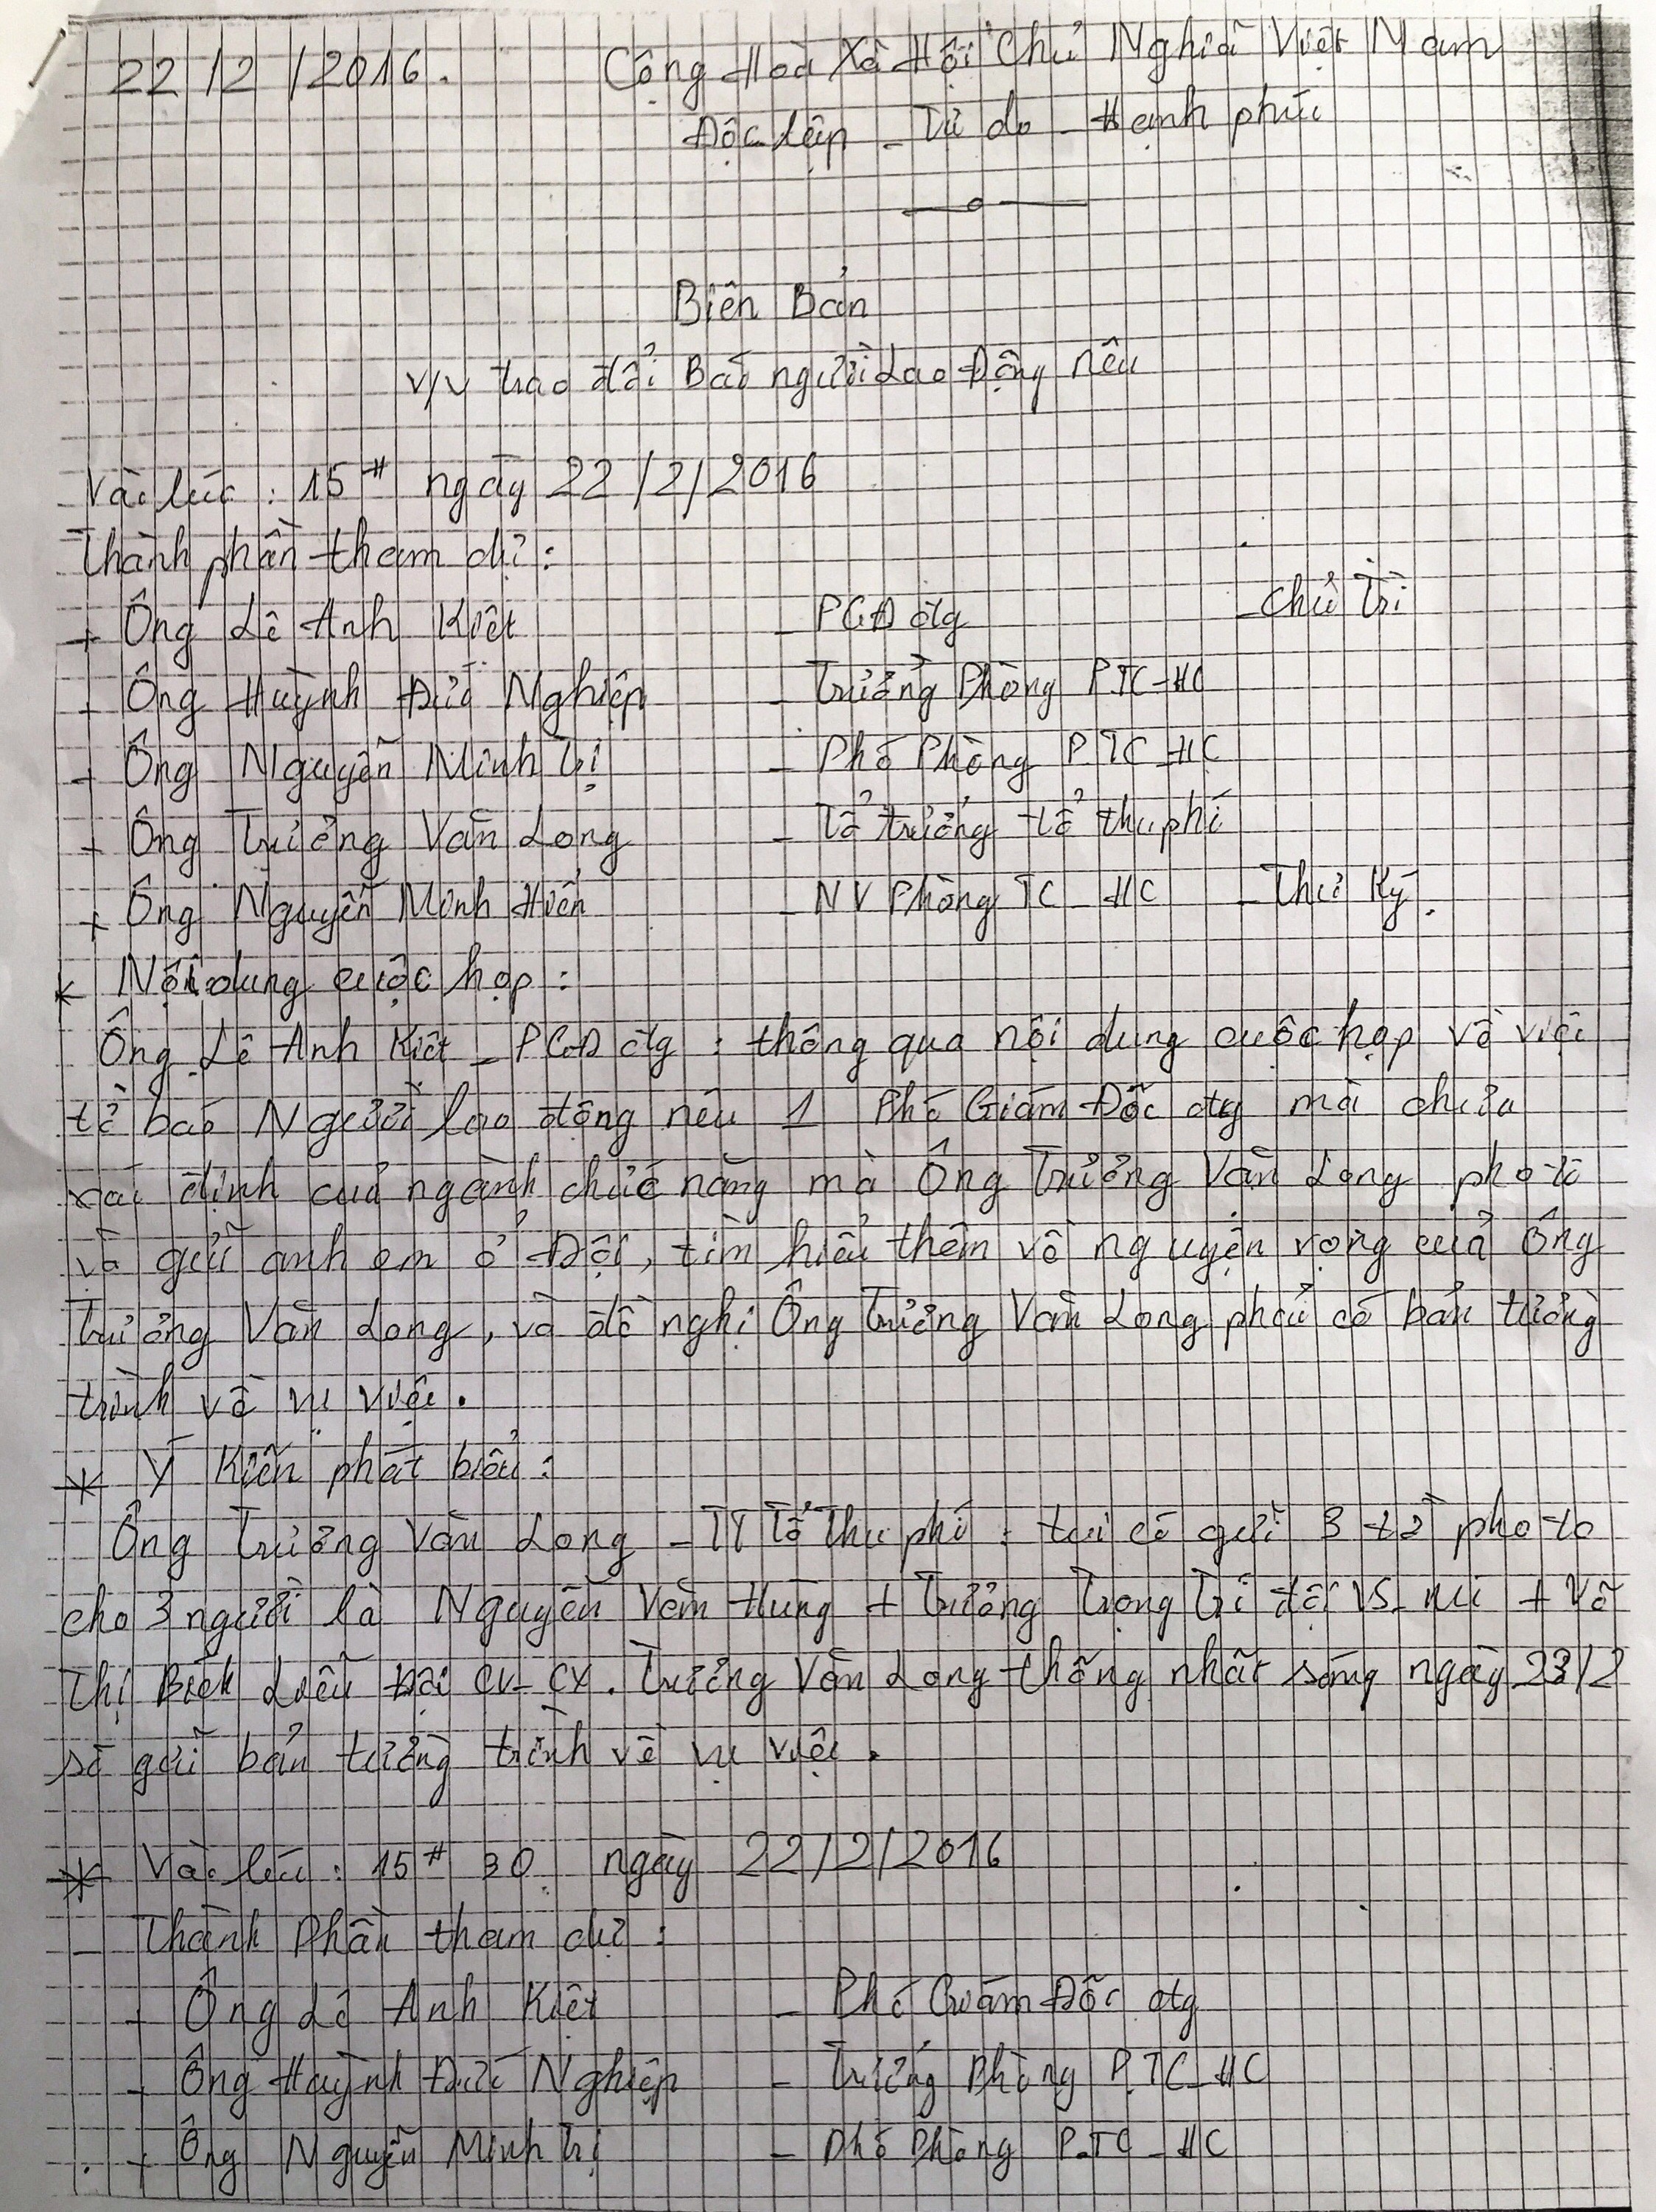 22/2/2016. Cộng Hoà Xã Hội Chủ Nghĩa Việt Nam
Độc lập - Tự do - Hạnh phúc
Biên Bản
V/v trao đổi Báo người Lao Động nêu
Vào lúc : 15H ngày 22/2/2016
Thành phần tham dự :
+ Ông Lê Anh Kiệt - PGĐ cty - Chủ Trì
+ Ông Huỳnh Đức Nghiệp - Trưởng Phòng P TC-HC
+ Ông Nguyễn Minh Trị - Phó Phòng P.TC-HC
+ Ông Trương Văn Long - Tổ trưởng tổ thu phí
+ Ông Nguyễn Minh Hiển - NV Phòng TC-HC - Thư Ký.
* Nội dung cuộc họp :
Ông Lê Anh Kiệt - PGĐ cty : thông qua nội dung cuộc họp về việc
tờ báo Người lao động nêu 1 Phó Giám Đốc cty mà chưa
xác định của ngành chức năng mà Ông Trương Văn Long photo
và gửi anh em ở Đội, tìm hiểu thêm về nguyện vọng của Ông
Trương Văn Long, và đề nghị Ông Trương Văn Long phải có bản tường
trình về vụ việc.
* Ý Kiến phát biểu :
Ông Trương Văn Long - TT Tổ Thu phí : tui có gửi 3 tờ photo
cho 3 người là Nguyễn Văn Hùng + Trương Trọng Trí đội VS +  Võ
Thị Bích Liễu đội CV-CX. Trương Văn Long thống nhất sáng ngày 23/2
sẽ gửi bản tường trình về vụ việc.
* Vào lúc : 15H 30 ngày 22/2/2016
- Thành Phần tham dự :
+ Ông Lê Anh Kiệt - Phó Giám Đốc cty
+ Ông Huỳnh Đức Nghiệp - Trưởng Phòng P.TC-HC
+ Ông Nguyễn Minh Trị - Phó Phòng P.TC-HC